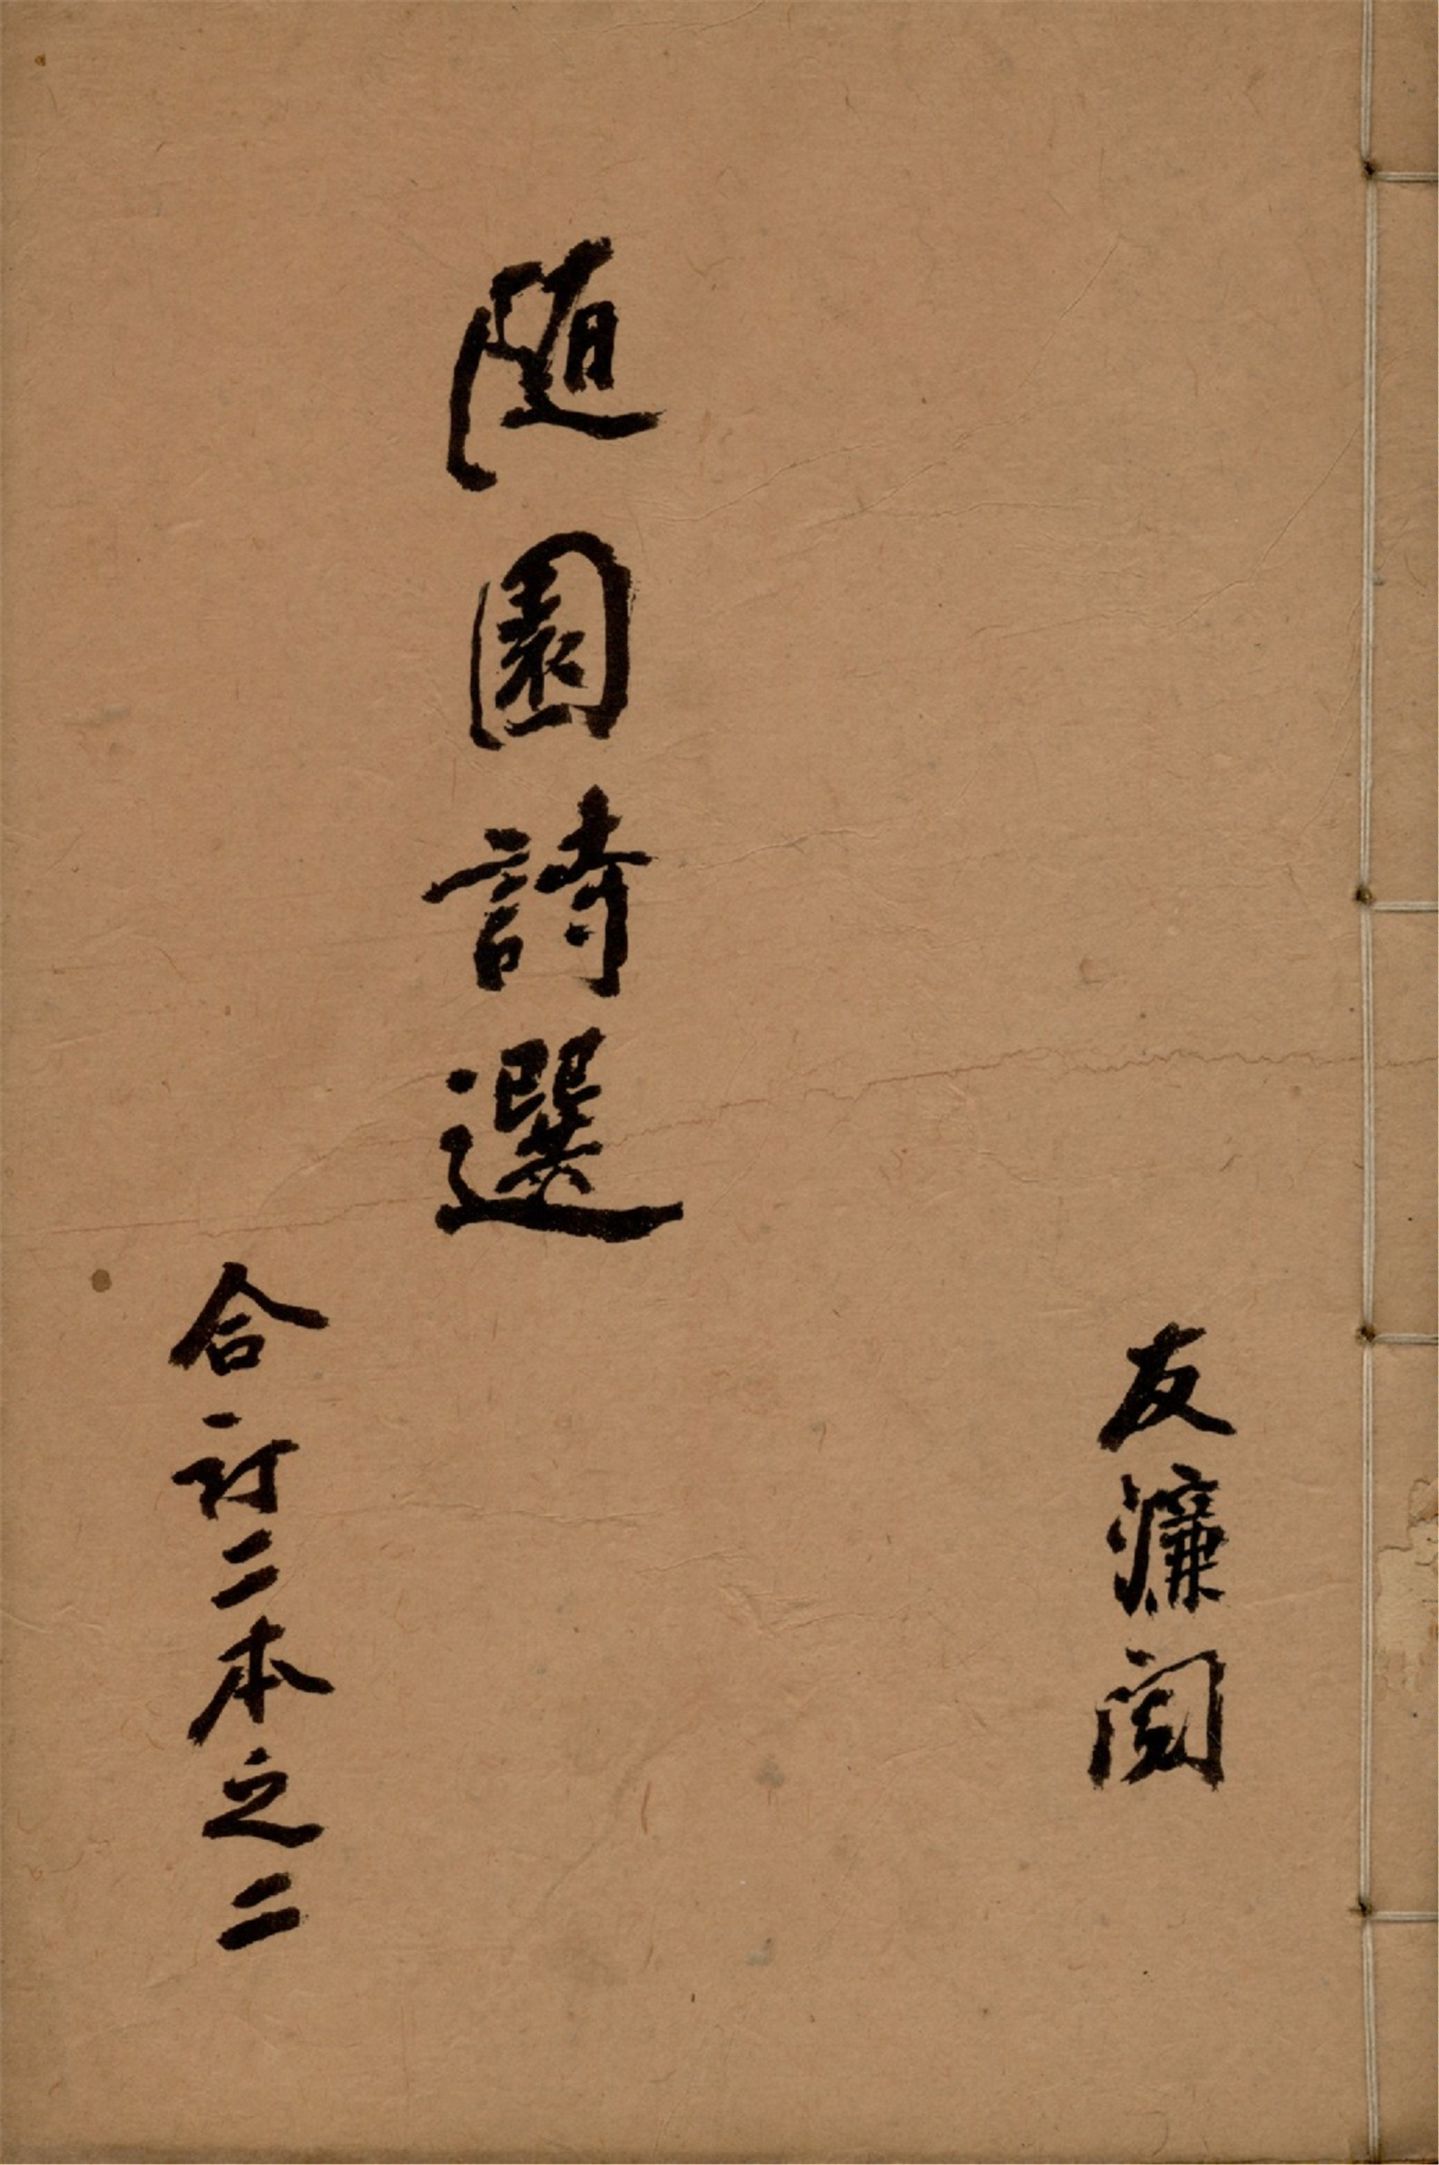 友濂閲
随園詩選
合訂二本之二